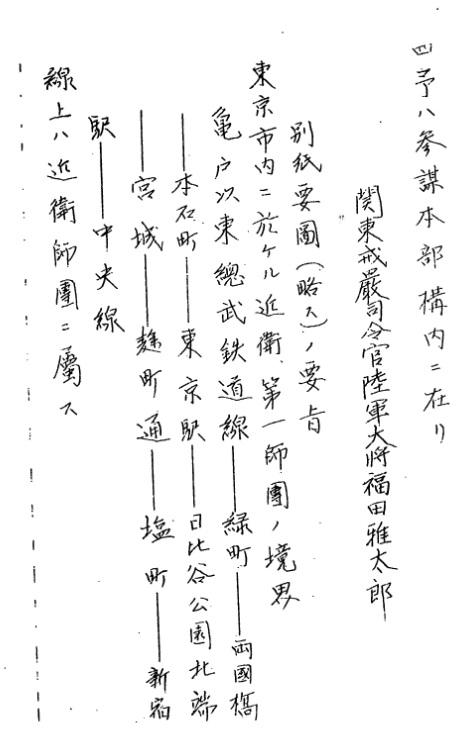 四予ハ参謀本部構内ニ在リ
関東戒厳司令官陸軍大将福田雅太郎
別紙要圖(略ス)ノ要旨
東京市内ニ於ケル近衛、第一師團ノ境界
亀戸以東總武鉄道線――緑町――両國橋
――本石町――東京駅――日比谷公園北端
――宮城――麹町通――塩町――新宿
駅――中央線
線上ハ近衛師團ニ屬ス